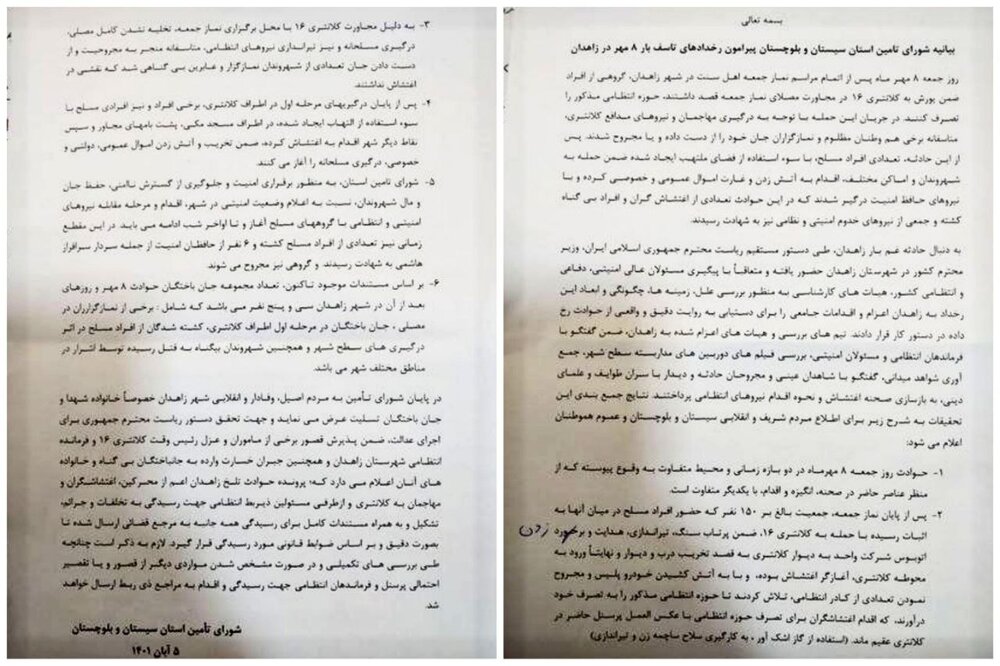 بسمه تعالی
بیانیه شورای تامین استان سیستان و بلوچستان پیرامون رخدادهای تاسف بار ۸ مهر در زاهدان
روز جمعه ۸ مهر ماه پس از اتمام مراسم نماز جمعه اهل سنت در شهر زاهدان، گروهی از افراد
ضمن یورش به کلانتری ۱۶ در مجاورت مصلای نماز جمعه قصد داشتند، حوزه انتظامی مذکور را
تصرف کنند. در جریان این حمله با توجه به درگیری مهاجمان و نیروهای مدافع کلانتری،
متاسفانه برخی هم وطنان مظلوم و نمازگزاران جان خود را از دست داده و یا مجروح شدند. پس
از این حادثه، تعدادی افراد مسلح، با سوء استفاده از فضای ملتهب ایجاد شده ضمن حمله به
شهروندان و اماکن مختلف، اقدام به آتش زدن و غارت اموال عمومی و خصوصی کرده و با
نیروهای حافظ امنیت درگیر شدند که در این حوادث تعدادی از اغتشاش گران و افراد بی گناه
کشته و جمعی از نیروهای خدوم امنیتی و نظامی نیز به شهادت رسیدند.
به دنبال حادثه غم بار زاهدان، طی دستور مستقیم ریاست محترم جمهوری اسلامی ایران، وزیر
محترم کشور در شهرستان زاهدان حضور یافته و متعاقباً با پیگیری مسئولان عالی امنیتی، دفاعی
و انتظامی کشور، هیات های کارشناسی به منظور بررسی علل، زمینه ها، چگونگی و ابعاد این
رخداد به زاهدان اعزام و اقدامات جامعی را برای دستیابی به روایت دقیق و واقعی از حوادث رخ
داده در دستور کار قرار دادند. تیم های بررسی و هیات های اعزام شده به زاهدان، ضمن گفتگو با
فرماندهان انتظامی و مسئولان امنیتی، بررسی فیلم های دوربین های مداربسته سطح شهر، جمع
آوری شواهد میدانی، گفتگو با شاهدان عینی و مجروحان حادثه و دیدار با سران طوایف و علمای
دینی، به بازسازی صحنه اغتشاش و نحوه اقدام نیروهای انتظامی پرداختند. نتایج جمع بندی این
تحقیقات به شرح زیر برای اطلاع مردم شریف و انقلابی سیستان و بلوچستان و عموم هموطنان
اعلام می شود:
۱- حوادث روز جمعه ۸ مهرماه در دو بازه زمانی و محیط متفاوت به وقوع پیوسته که از
منظر عناصر حاضر در صحنه، انگیزه و اقدام، با یکدیگر متفاوت است.
۲- پس از پایان نماز جمعه، جمعیت بالغ بر ۱۵۰ نفر که حضور افراد مسلح در میان آنها به
اثبات رسیده با حمله به کلانتری ۱۶، ضمن پرتاب سنگ، تیراندازی، هدایت و برخورد
اتوبوس شرکت واحد به دیوار کلانتری به قصد تخریب درب و دیوار و نهایتاً ورود به
محوطه کلانتری، آغازگر اغتشاش بوده، و با به آتش کشیدن خودرو پلیس و مجروح
نمودن تعدادی از کادر انتظامی، تلاش کردند تا حوزه انتظامی مذکور را به تصرف خود
درآورند، که اقدام اغتشاشگران برای تصرف حوزه انتظامی با عکس العمل پرسنل حاضر در
کلانتری عقیم ماند. (استفاده از گاز اشک آور، به کارگیری سلاح ساچمه زن و تیراندازی)
۳- به دلیل مجاورت کلانتری ۱۶ با محل برگزاری نماز جمعه، تخلیه نشدن کامل مصلی،
درگیری مسلحانه و نیز تیراندازی نیروهای انتظامی، متاسفانه منجر به مجروحیت و از
دست دادن جان تعدادی از شهروندان نمازگزار و عابرین بی گناهی شد که نقشی در
اغتشاش نداشتند.
۴- پس از پایان درگیریهای مرحله اول در اطراف کلانتری، برخی افراد و نیز افرادی مسلح با
سوء استفاده از التهاب ایجاد شده، در اطراف مسجد مکی، پشت بامهای مجاور و سپس
نقاط دیگر شهر اقدام به اغتشاش کرده، ضمن تخریب و آتش زدن اموال عمومی، دولتی و
خصوصی، درگیری مسلحانه را آغاز می کنند.
۵- شورای تامین استان، به منظور برقراری امنیت و جلوگیری از گسترش ناامنی، حفظ جان
و مال شهروندان، نسبت به اعلام وضعیت امنیتی در شهر، اقدام و مرحله مقابله نیروهای
امنیتی و انتظامی با گروههای مسلح آغاز و تا اواخر شب ادامه می یابد. در این مقطع
زمانی نیز تعدادی از افراد مسلح کشته و ۶ نفر از حافظان امنیت از جمله سردار سرافراز
هاشمی به شهادت رسیدند و گروهی نیز مجروح می شوند.
۶- بر اساس مستندات موجود تاکنون، تعداد مجموعه جان باختگان حوادث ۸ مهر و روزهای
بعد از آن در شهر زاهدان سی و پنج نفر می باشد که شامل: برخی از نمازگزارران در
مصلی، جان باختگان در مرحله اول اطراف کلانتری، کشته شدگان از افراد مسلح در اثر
درگیری های سطح شهر و همچنین شهروندان بیگناه به قتل رسیده توسط اشرار در
مناطق مختلف شهر می باشد.
در پایان شورای تأمین به مردم اصیل، وفادار و انقلابی شهر زاهدان خصوصاً خانواده شهدا و
جان باختگان تسلیت عرض می نماید و جهت تحقق دستور ریاست محترم جمهوری برای
اجرای عدالت، ضمن پذیرش قصور برخی از ماموران و عزل رئیس وقت کلانتری ۱۶ و فرمانده
انتظامی شهرستان زاهدان و همچنین جبران خسارت وارده به جانباختگان بی گناه و خانواده
های آنان اعلام می دارد که؛ پرونده حوادث تلخ زاهدان اعم از محرکین، اغتشاشگران و
مهاجمان به کلانتری و ازطرفی مسئولین ذیربط انتظامی جهت رسیدگی به تخلفات و جرائم،
تشکیل و به همراه مستندات کامل برای رسیدگی همه جانبه به مرجع قضائی ارسال شده تا
بصورت دقیق و بر اساس ضوابط قانونی مورد رسیدگی قرار گیرد. لازم به ذکر است چنانچه
طی بررسی های تکمیلی و در صورت مشخص شدن مواردی دیگر از قصور و یا تقصیر
احتمالی پرسنل و فرماندهان انتظامی جهت رسیدگی و اقدام به مراجع ذی ربط ارسال خواهد
شد.
شورای تأمین استان سیستان و بلوچستان
۵ آبان ۱۴۰۱